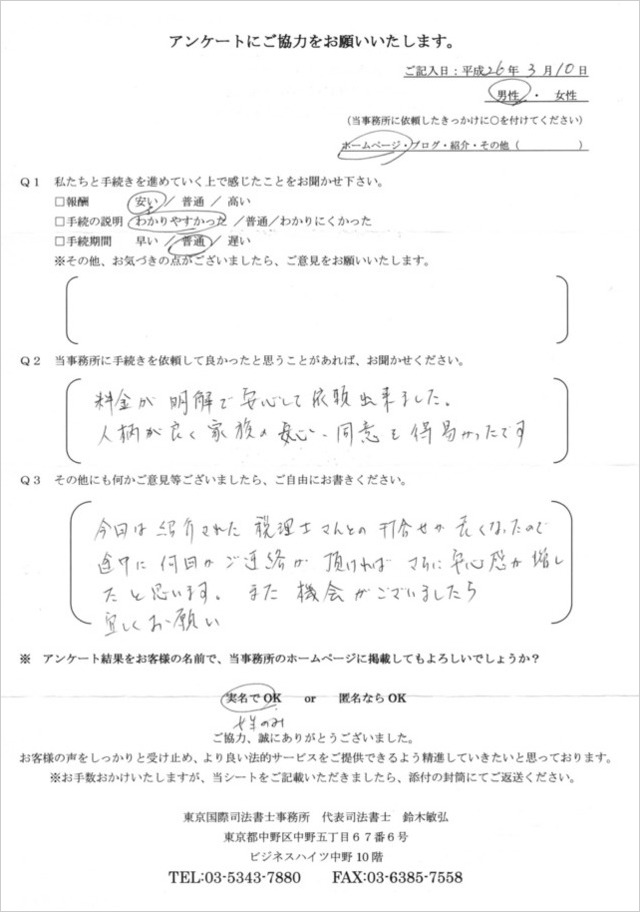 アンケートにご協力をお願いいたします。
ご記入日：平成26年3月10日
男性 ・ 女性
（当事務所に依頼したきっかけに○を付けてください）
ホームページ・ブログ・紹介・その他（　　　　　）
Q1　私たちと手続きを進めていく上で感じたことをお聞かせ下さい。
□報酬　安い / 普通 / 高い
□手続の説明　わかりやすかった / 普通/わかりにくかった
□手続期間　早い / 普通 / 遅い
※その他、お気づきの点がございましたら、ご意見をお願いいたします。
Q2　当事務所に手続きを依頼して良かったと思うことがあれば、お聞かせください。
料金が明解で安心して依頼出来ました。
人柄が良く家族の安心、同意も得易かったです
Q3　その他にも何かご意見等ございましたら、ご自由にお書きください。
今回は紹介された税理士さんとの打合せが長くなったので
途中に何回かご連絡が頂ければさらに安心感が増し
たと思います。また機会がございましたら
宜しくお願い
※　アンケート結果をお客様の名前で、当事務所のホームページに掲載してもよろしいでしょうか？
実名でOK　or　匿名ならOK
姓のみ
ご協力、誠にありがとうございました。
お客様の声をしっかりと受け止め、より良い法的サービスをご提供できるよう精進していきたいと思っております。
※お手数おかけいたしますが、当シートをご記載いただきましたら、添付の封筒にてご返送ください。
東京国際司法書士事務所　代表司法書士　鈴木敏弘
東京都中野区中野五丁目67番6号
ビジネスハイツ中野10階
TEL:03-5343-7880　FAX:03-6385-7558